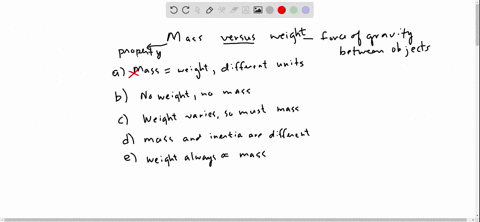 Mass versus weight – force of gravity
property between objects
a) Mass = weight, different units
b) No weight, no mass
c) Weight varies, so must mass
d) mass and inertia are different
e) Weight always ∝ mass